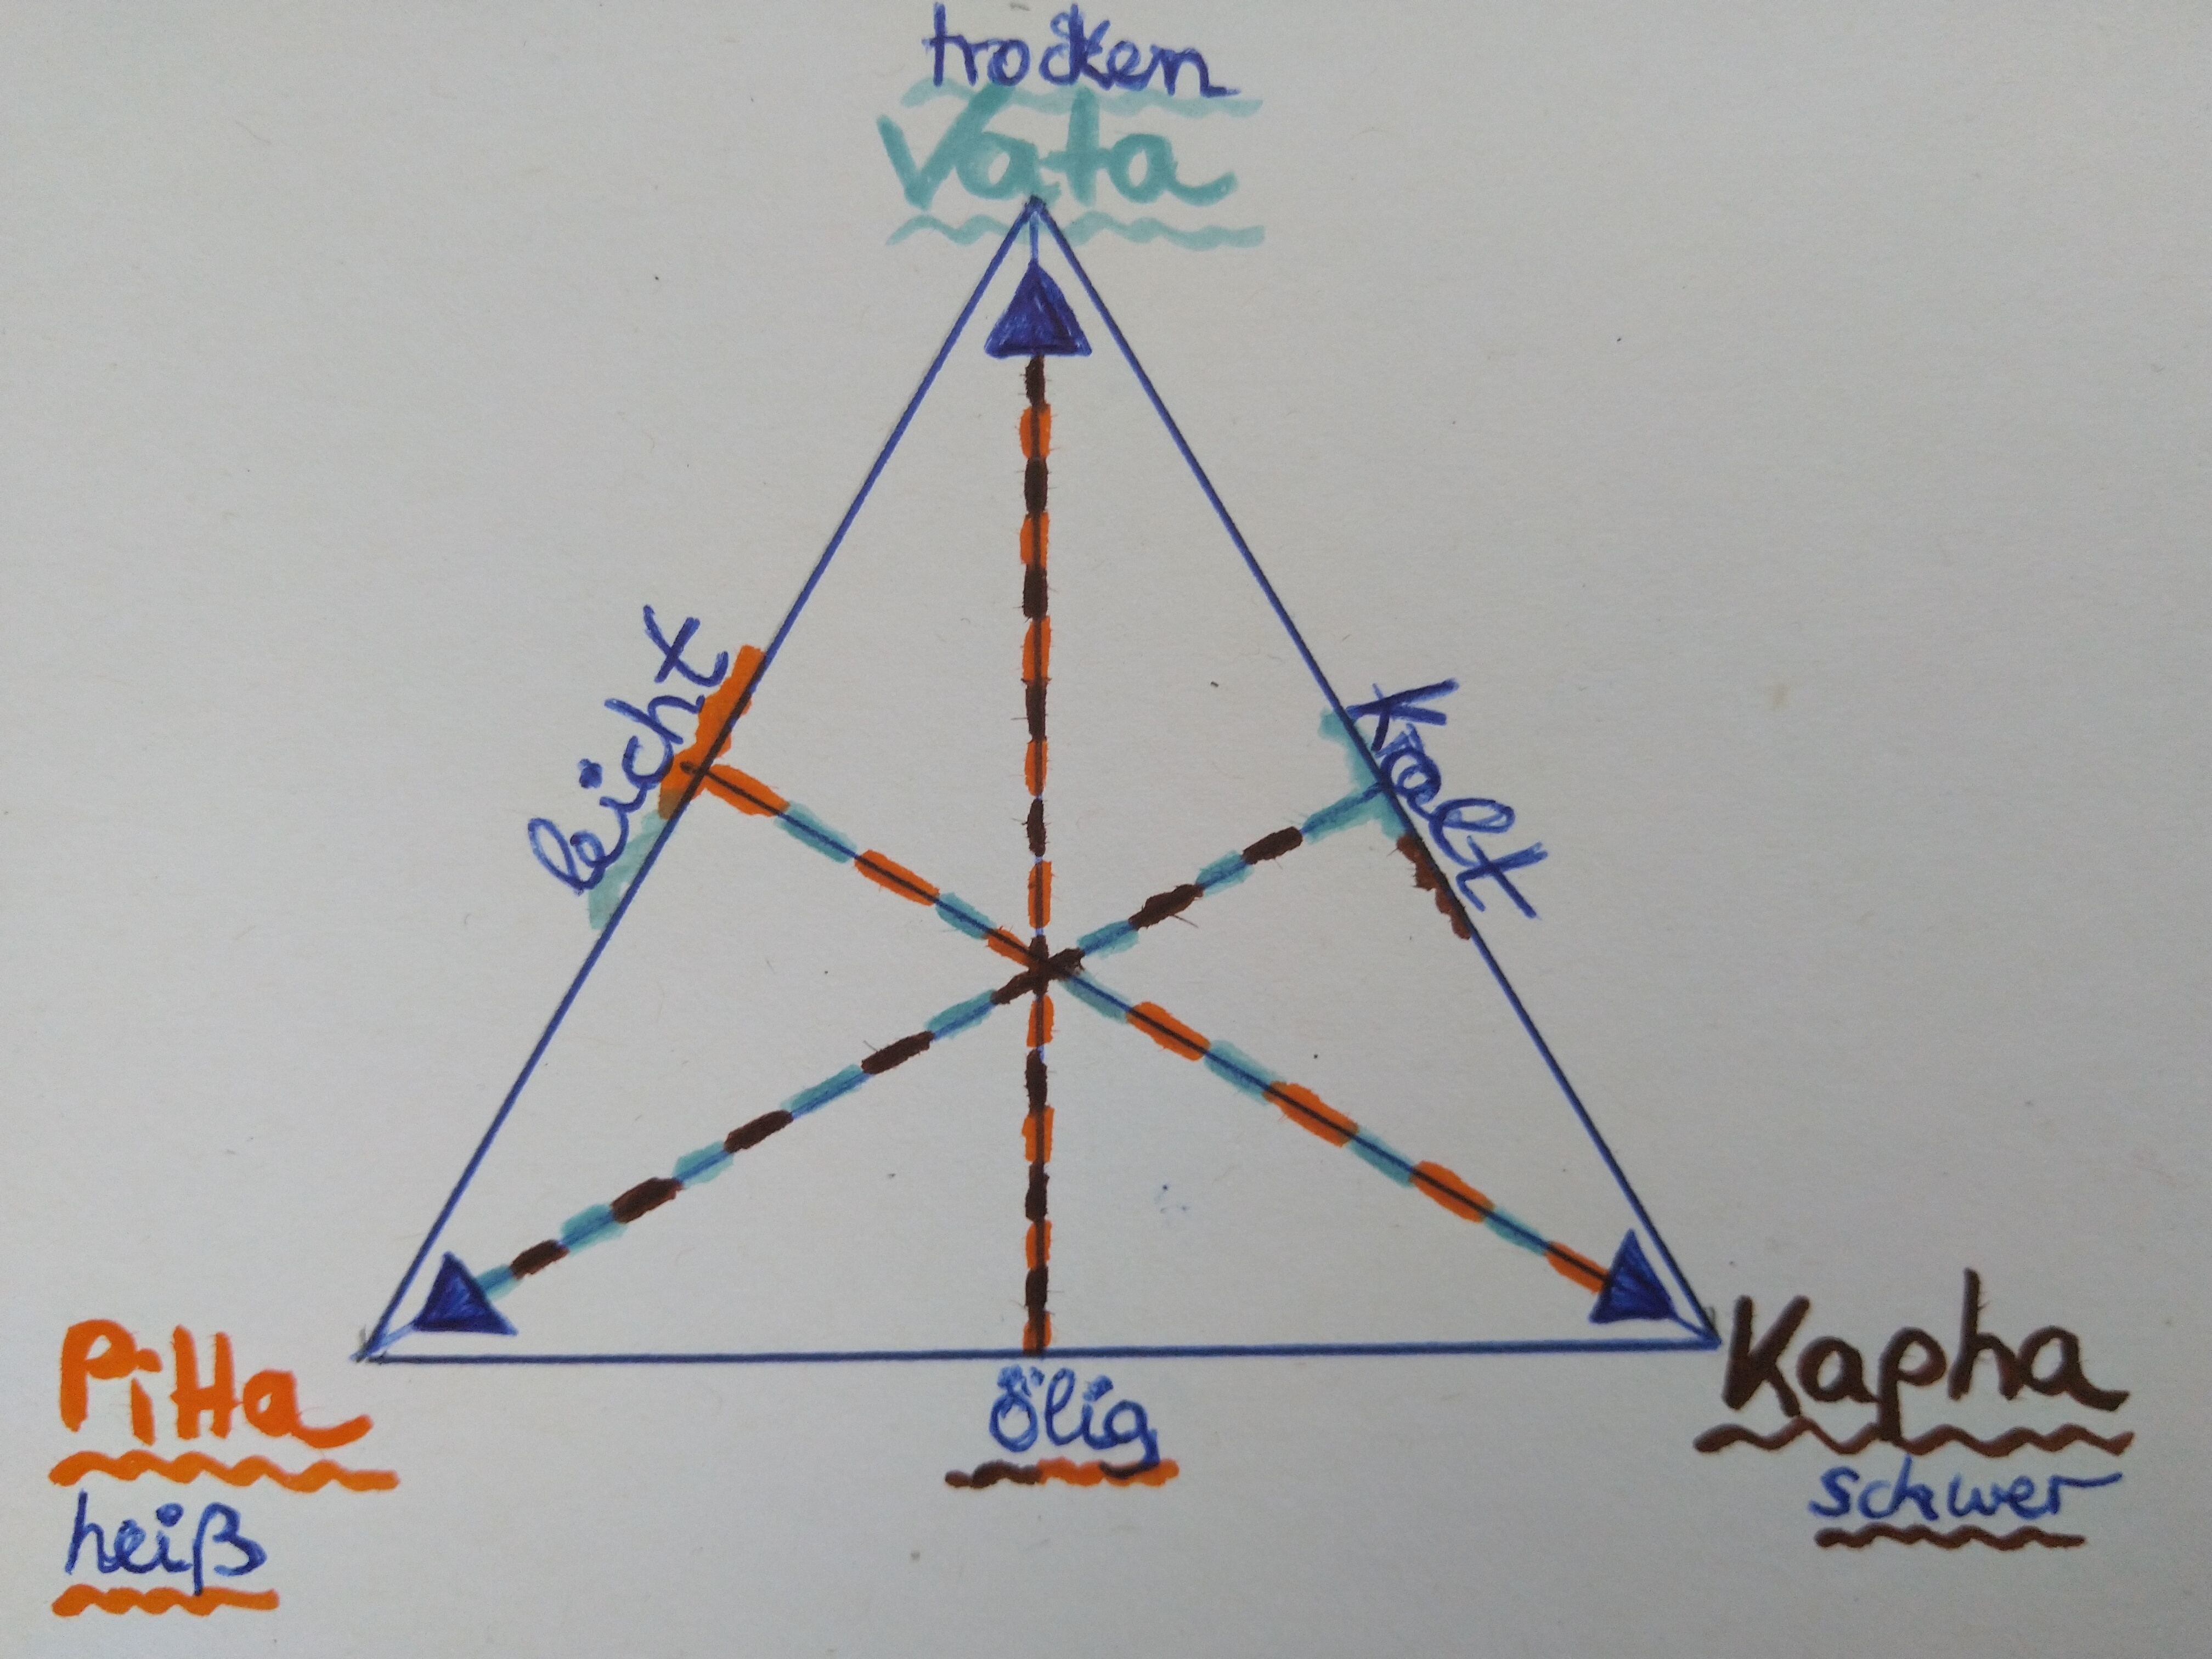 trocken
Vata
leicht
Kalt
Pitta
heiß
ölig
Kapha
schwer